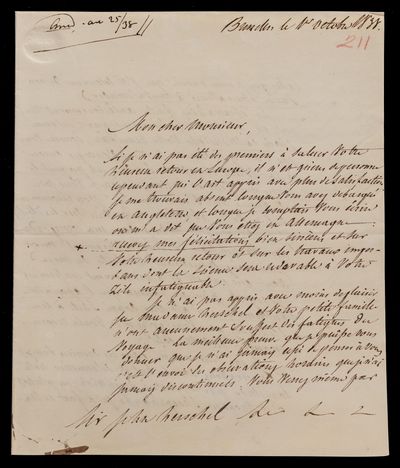 Ansd. Jan 25/38
Bruxelles le 1er Octobre 1838.
211
Mon cher Monsieur,
Si je n'ai pas été des premiers à saluer Votre
heureux retour en Europe, il n'est guère de personne
cependant qui l'ait appris avec plus de satisfaction
je me trouvais absent lorsque Vous avez débarqué
en Angleterre, et lorsque je comptais Vous écrire
on m'a dit que Vous étiez en Allemagne
recevez mes félicitations bien sincères et sur
Votre heureux retour et sur les travaux impor-
tans dont la Science sera redevable à Votre
zèle infatigable.
Je n'ai pas appris avec moins de plaisir
que Madame Herschel et Votre petite famille
n'ont aucunement souffert des fatigues du
Voyage. La meilleure preuve que je puisse vous
donner que je n'ai jamais cessé de penser à vous
c'est l'envoi des observations horaires que je n'ai
jamais discontinuées. Vous verrez même par
Sir John Herschel &c &c &c